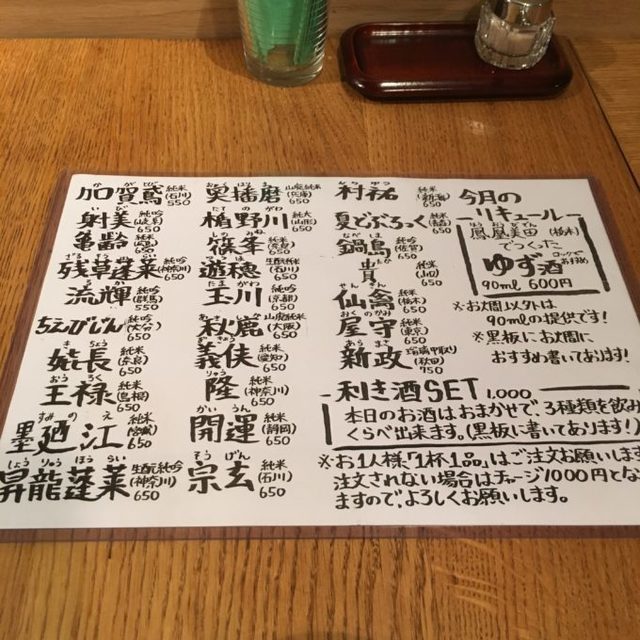 加賀鳶 純米 (石川) 550
射美 純吟 (岐阜) 650
亀齢
残草蓬莱 純吟 (神奈川) 650
流輝 純吟 (群馬) 550
ちえびじん 純吟 (大分) 650
嬉長 純米 (奈良) 650
王禄 純米 (島根) 650
墨廼江 純吟 (宮城) 650
昇龍蓬莱 生酛純吟 (神奈川) 650
奥播磨 山廃純米 (兵庫) 650
楯野川 純大 (山形) 650
篠峯
遊穂 生酛純米 (石川) 650
玉川 純吟 (京都) 650
秋鹿 山廃純米 (大阪) 650
義侠 純米 (愛知) 650
隆 純米 (神奈川) 650
開運 純米 (静岡) 650
宗玄 純米 (石川) 650
村祐 純米 (新潟) 650
夏どぶろっく 純米 650
鍋島 純吟 (佐賀) 650
貴 (山口) 650
仙禽 純米 (栃木) 650
屋守 純米 (東京) 650
新政 (秋田) 750
今月の
リキュール
鳳凰美田 (栃木)
でつくった
ゆず酒 ロックがおすすめ
90ml 600円
※お燗以外は
90mlの提供です!
※黒板にお燗に
おすすめ書いてあります!
利き酒SET 1,000
本日のお酒はおまかせで、3種類を飲み
くらべ出来ます。(黒板に書いてあります!)
※お1人様、「1杯・1品」はご注文お願いします
注文されない場合はチャージ1000円とな
ますので、よろしくお願いします。